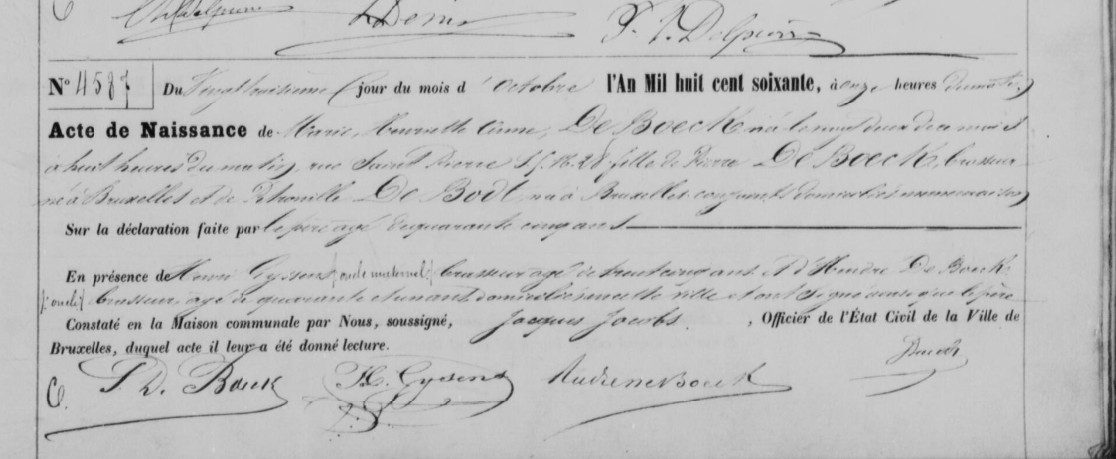 C. Delpierre L. Denis F. J. Delpierre
N° 4587 Du Vingt huitième jour du mois d'octobre l'An Mil huit cent soixante, à onze heures du matin,
Acte de Naissance de Marie, Henriette De Boeck née le vingt deux de ce mois
à huit heures du matin, rue Saint Pierre 28 fille de Pierre De Boeck, brasseur
né à Bruxelles et de Pétronille De Bodt née à Bruxelles conjoints domiciliés même maison
Sur la déclaration faite par le père âgé de quarante cinq ans
En présence de Henri Gysens (oncle maternel) brasseur âgé de trente cinq ans et d'Andre De Boeck
(oncle) brasseur, âgé de quarante et un ans domiciliés en cette ville et ont signé ainsi que le père
Constaté en la Maison communale par Nous, soussigné, Jacques Jacobs , Officier de l'État Civil de la Ville de
Bruxelles, duquel acte il leur a été donné lecture.
Jacobs
C. P. D. Boeck H. Gysens Andre De Boeck